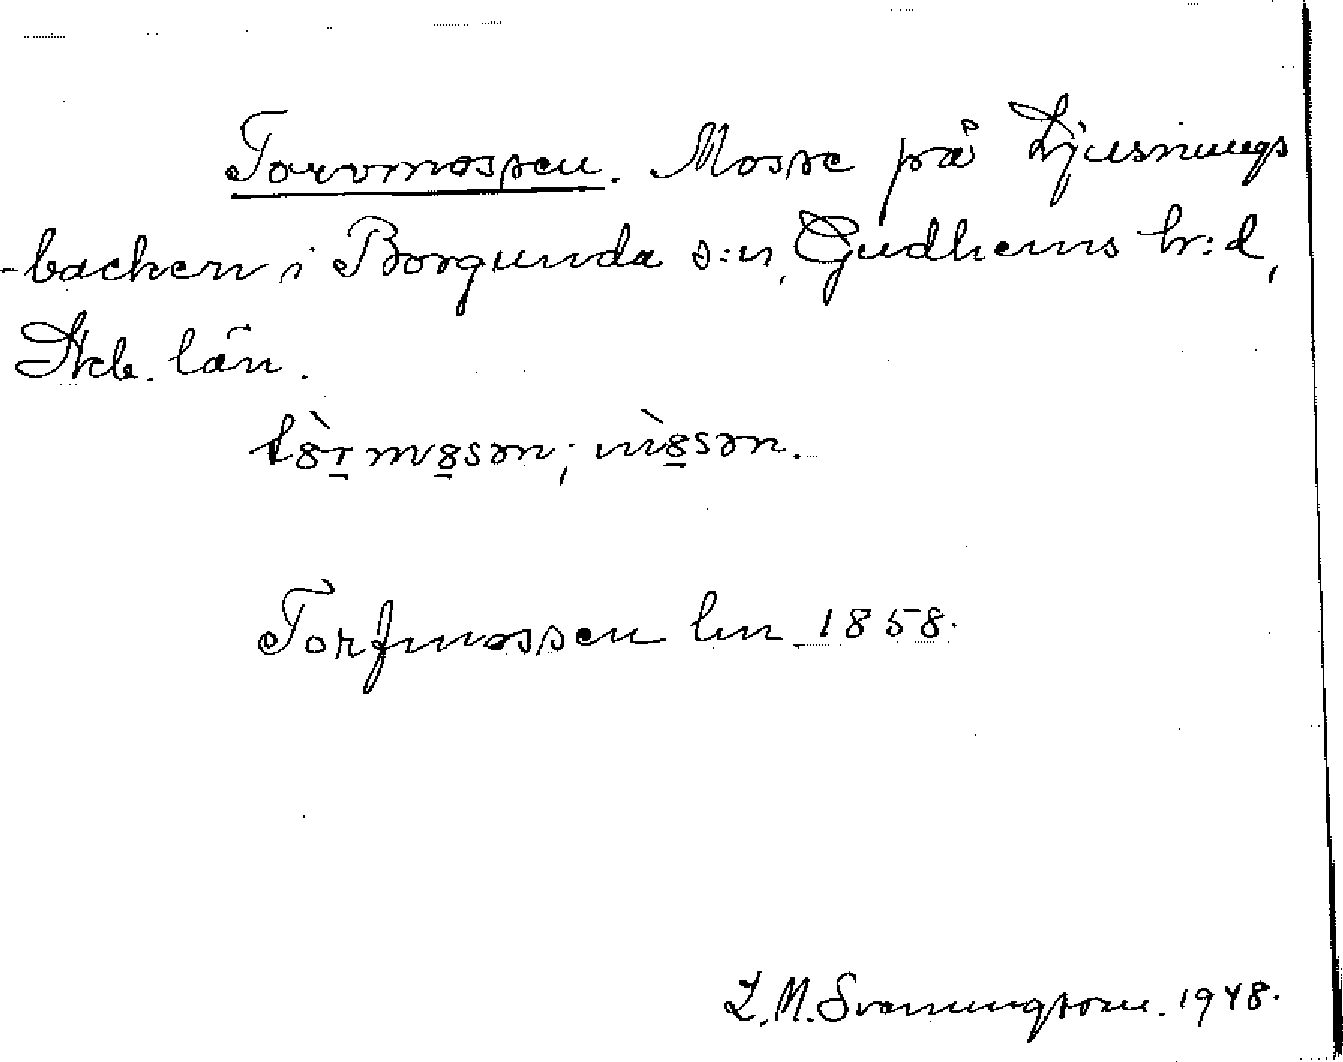 Torvmossen. Mosse på Ljusnings
-backen i Borgunda s:n, Gudhems hr:d,
Skb. län.
tȯ̀rmosən; mòsən.
Torfmossen lm 1858.
L. M. Svenningsson. 1948.